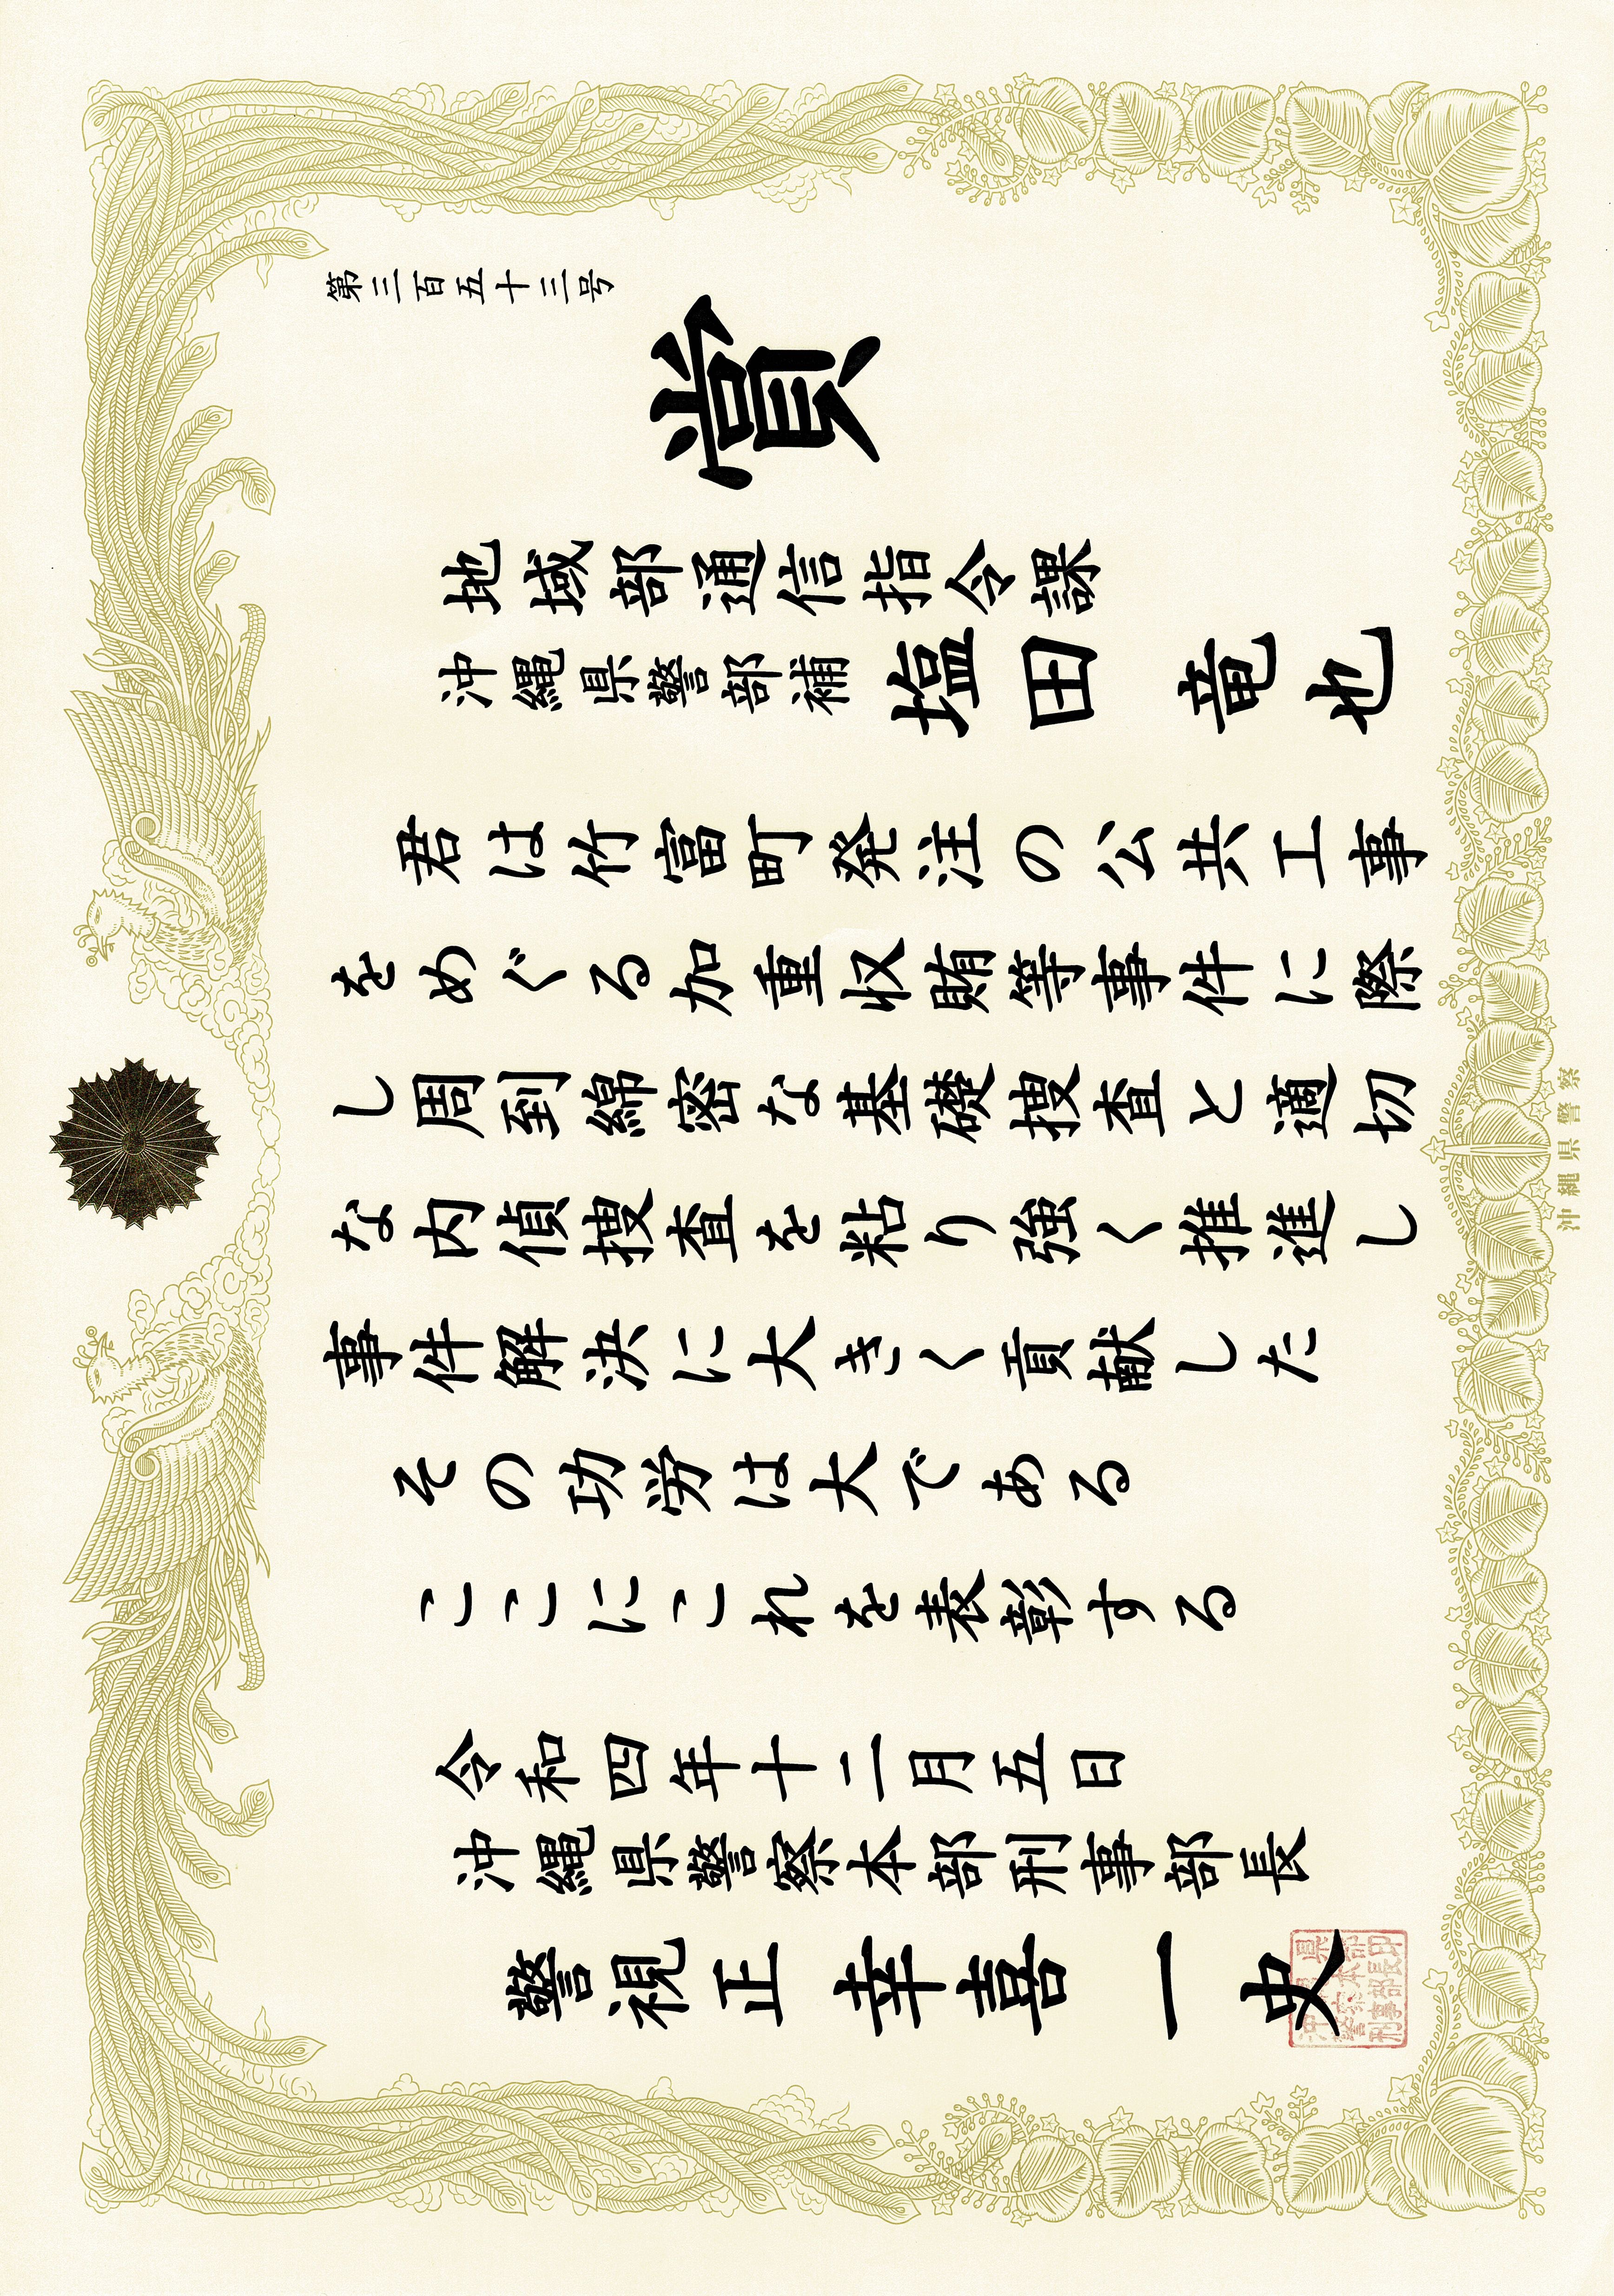 第三百五十三号
賞
地域部通信指令課
沖縄県警部補 塩田竜也
君は竹富町発注の公共工事
をめぐる加重収賄等事件に際
し周到綿密な基礎捜査と適切
な内偵捜査を粘り強く推進し
事件解決に大きく貢献した
その功労は大である
ここにこれを表彰する
令和四年十二月五日
沖縄県警察本部刑事部長
警視正 幸喜一史
沖縄県警察本部刑事部長印
沖縄県警察